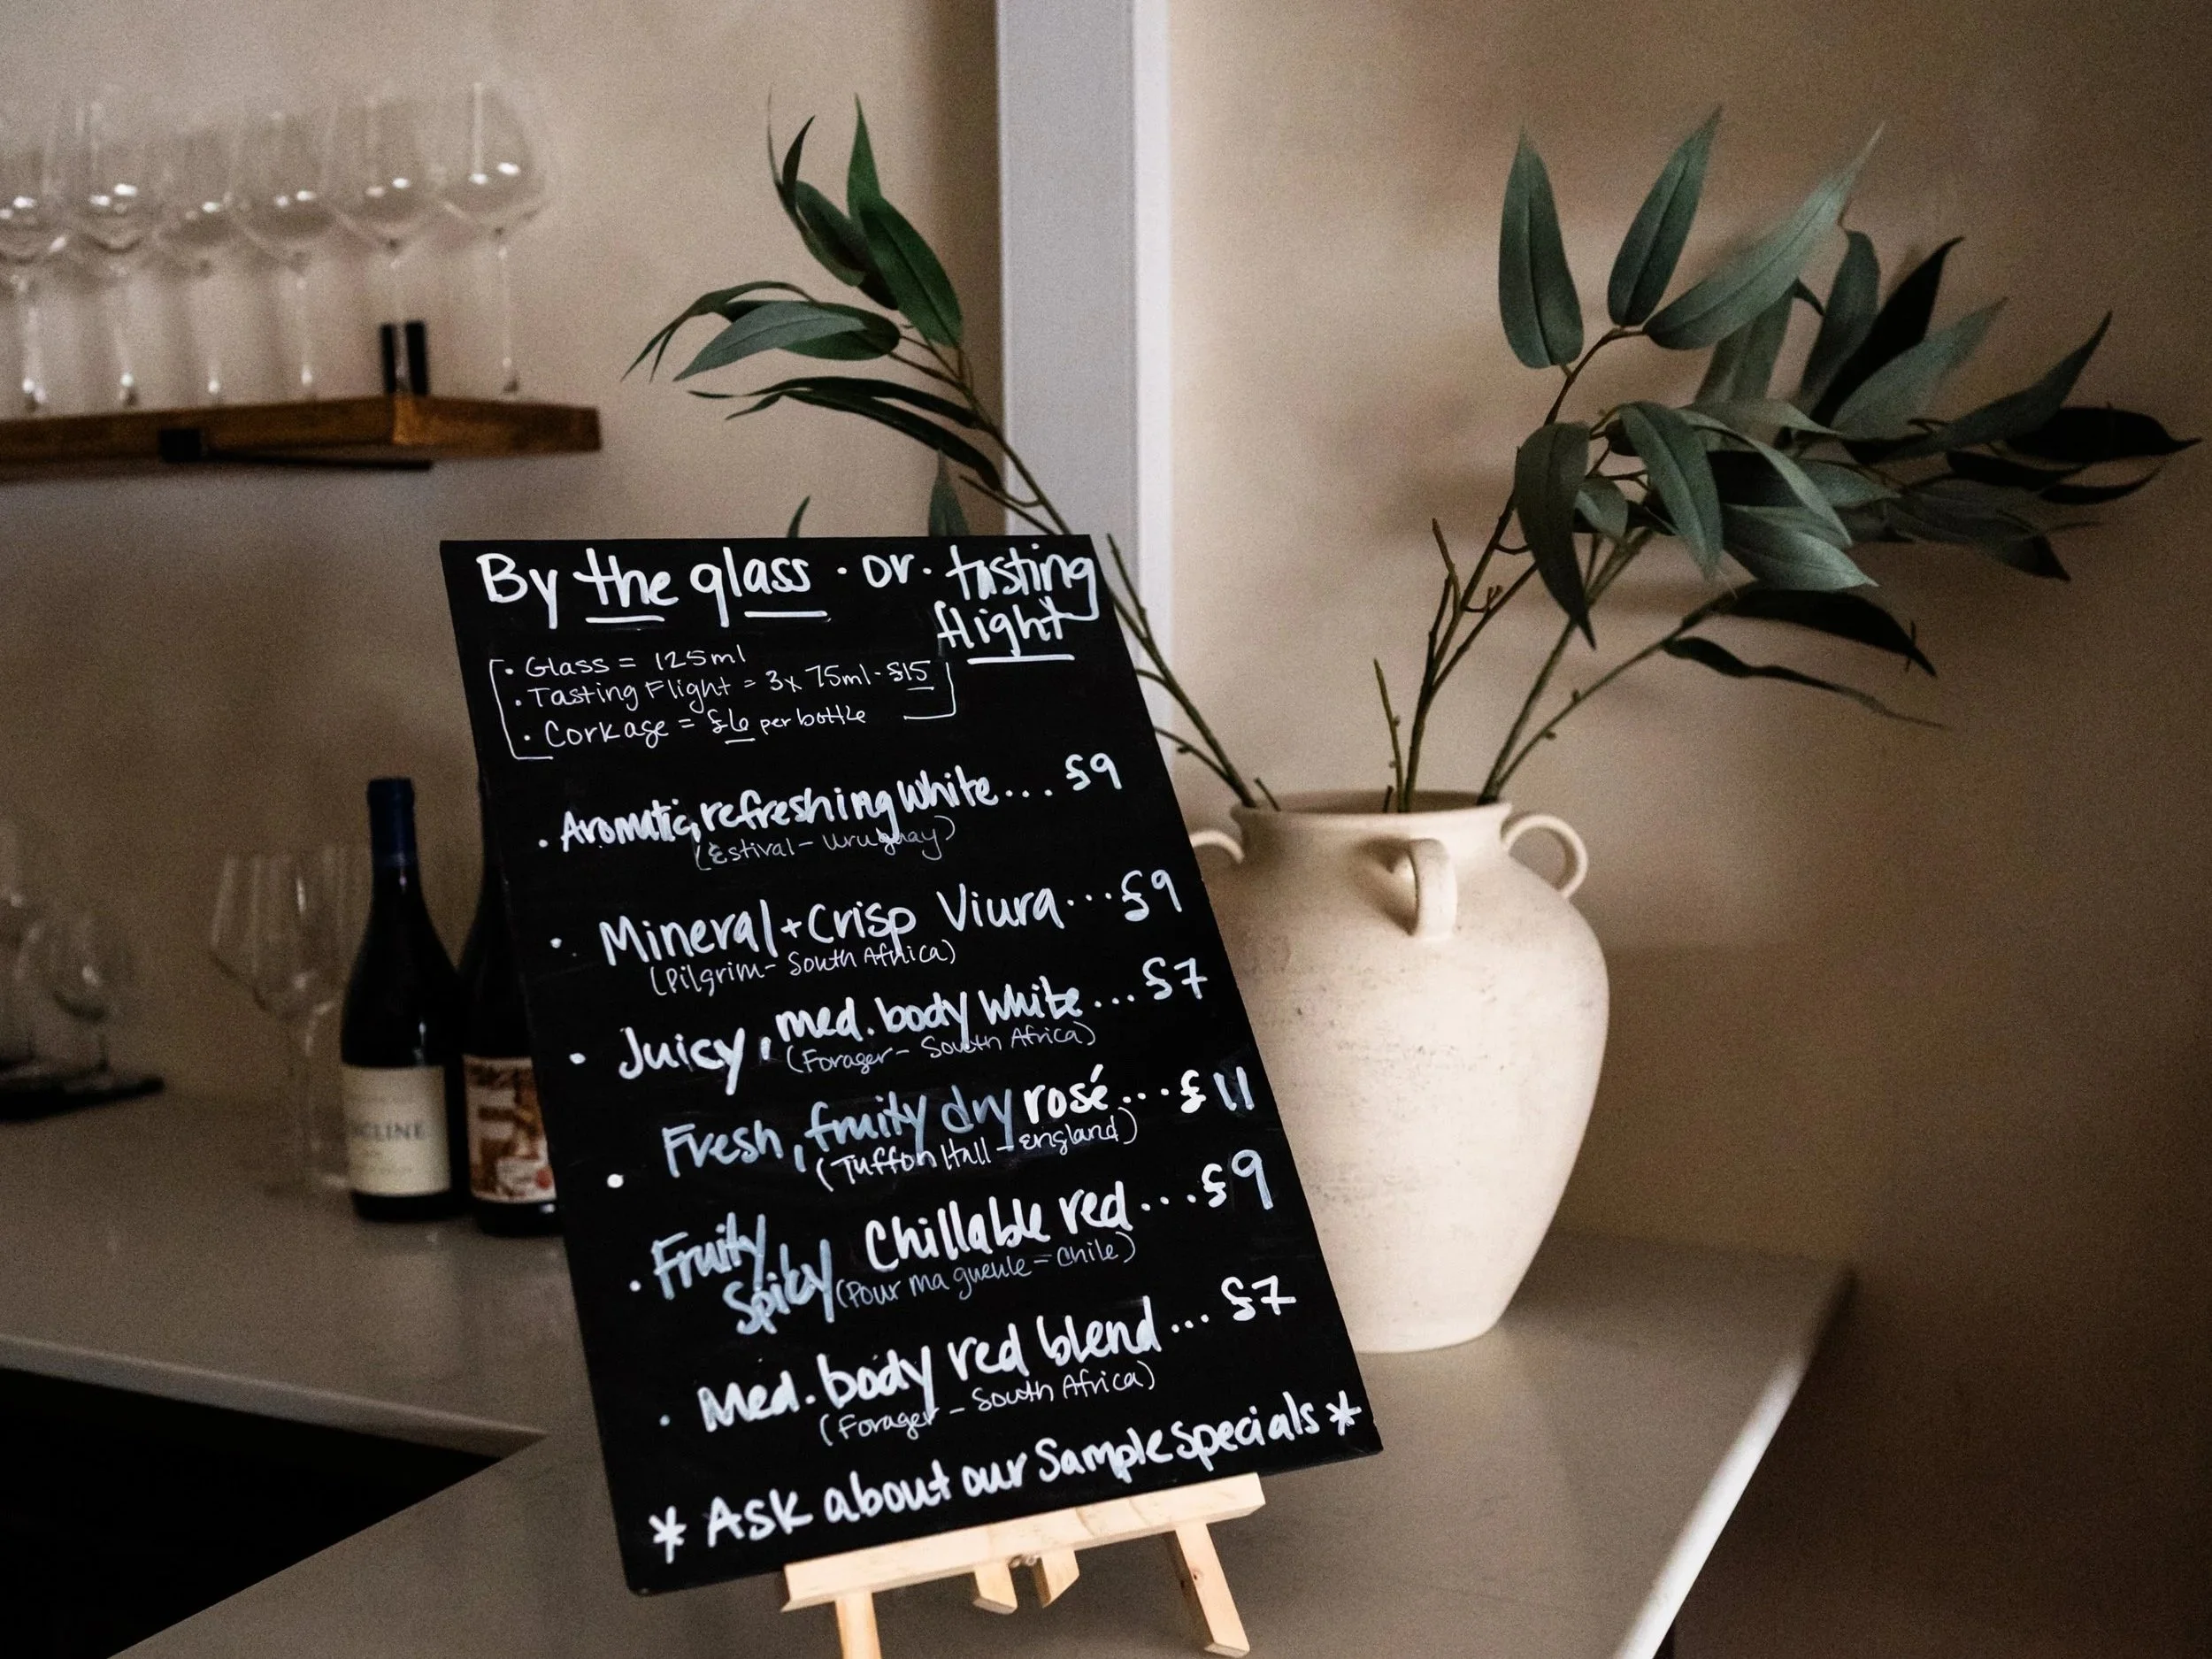 By the glass · or · tasting
flight
· Glass = 125ml
· Tasting Flight = 3x 75ml - £15
· Corkage = £6 per bottle
· Aromatic, refreshing white ... £9
(Estival - Uruguay)
· Mineral + Crisp Viura ... £9
(Pilgrim - South Africa)
· Juicy, med. body white ... £7
(Forager - South Africa)
· Fresh, fruity dry rosé ... £11
(Tuffon Hall - England)
· Fruity Chillable red ... £9
Spicy (Pour ma gueule - Chile)
· Med. body red blend ... £7
(Forager - South Africa)
* Ask about our Sample specials *